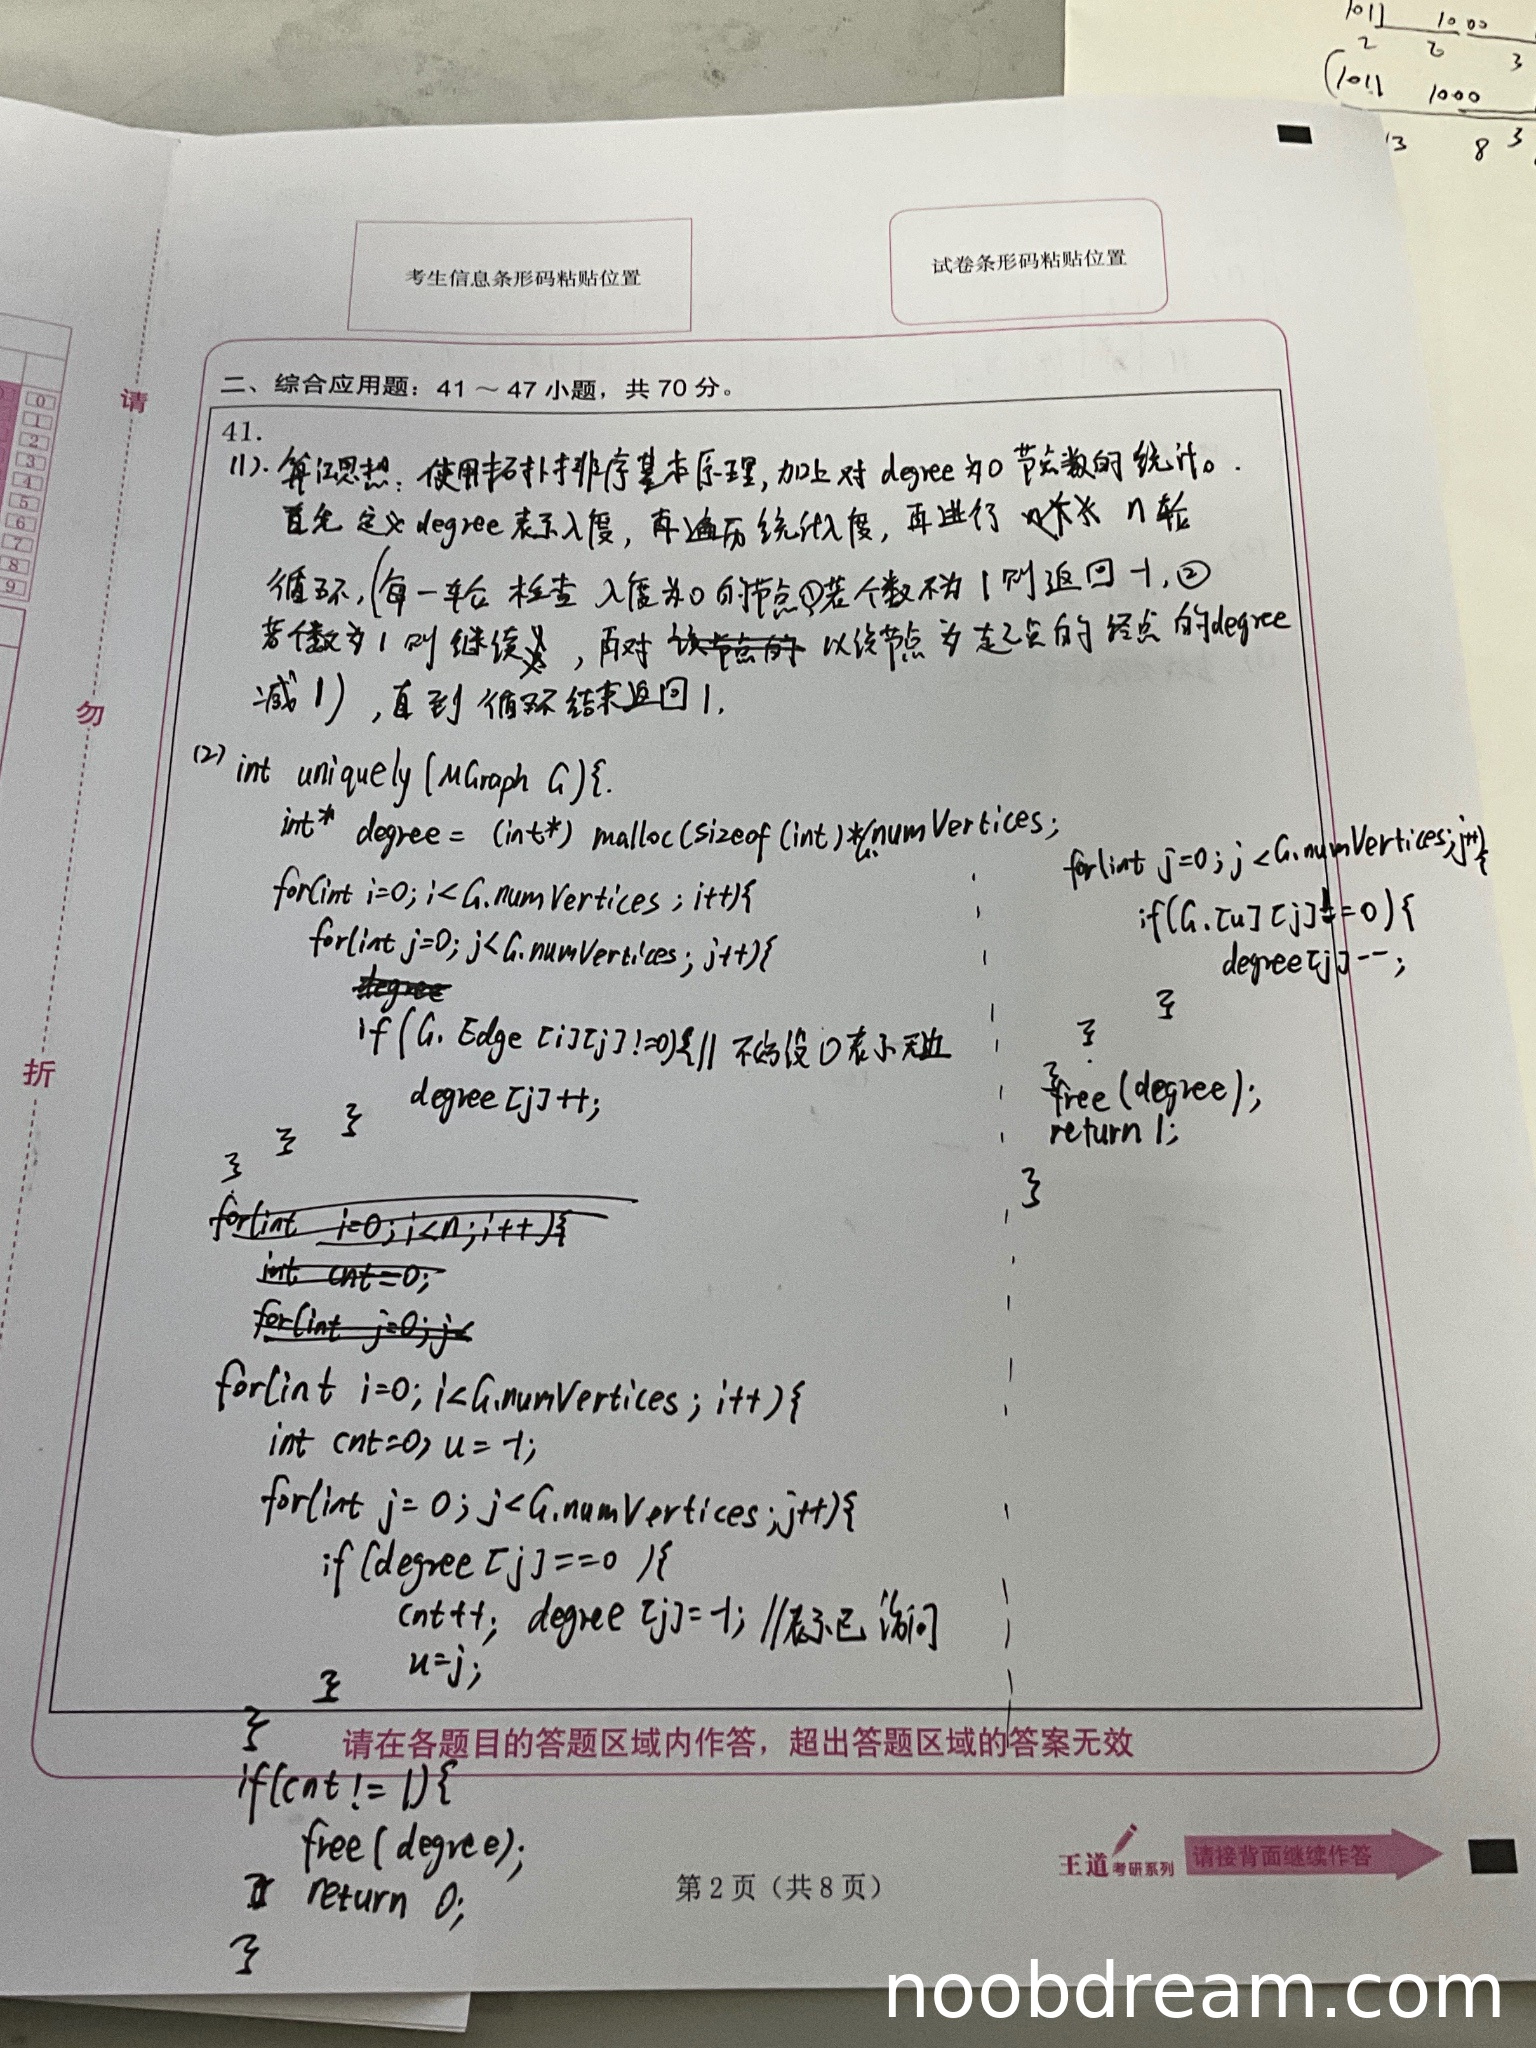 1011 1000
2 2 3
(1011 1000
13 8 3
考生信息条形码粘贴位置
试卷条形码粘贴位置
请
勿
折
0
1
2
3
4
5
6
7
8
9
二、综合应用题：41～47 小题，共 70 分。
41.
(1). 算法思想：使用拓扑排序基本原理，加上对 degree 为 0 节点数的统计。
首先定义 degree 表示入度，再遍历统计入度，再进行 n 轮
循环，(每一轮检查 入度为0的节点①若个数不为 1 则返回 -1，②
若个数为 1 则继续，再对 该节点的 以该节点为起点的终点的degree
减 1)，直到循环结束返回 1.
(2) int uniquely(MGraph G){.
int* degree = (int*) malloc(sizeof(int)*G.numVertices;
for(int i=0; i<G.numVertices; i++){
for(int j=0; j<G.numVertices; j++){
degree
if(G. Edge [i][j] !=0){// 不妨设 0 表示无边
degree[j]++;
}
}
}
for(int i=0; i<n; i++){
int cnt=0;
for(int j=0; j<
for(int i=0; i<G.numVertices; i++){
int cnt=0, u = -1;
for(int j = 0; j<G.numVertices; j++){
if(degree [j]==0 ){
cnt++; degree [j]=-1; //表示已访问
u=j;
}
}
if(cnt != 1){
free( degree);
return 0;
}
for(int j=0; j<G.numVertices; j++){
if(G.[u][j]!==0){
degree[j]--;
}
}
}
free(degree);
return 1;
}
请在各题目的答题区域内作答，超出答题区域的答案无效
王道考研系列
请接背面继续作答
第 2 页（共 8 页）
noobdream.com